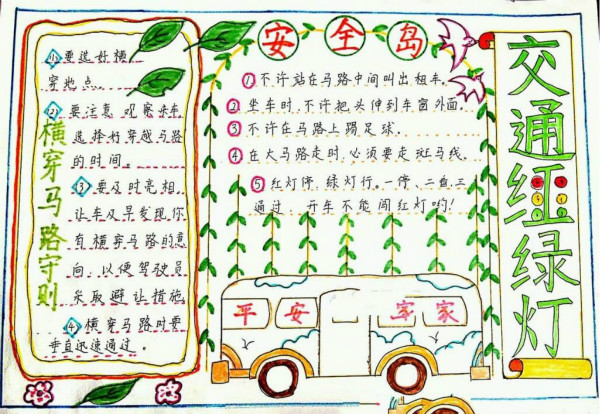 横穿马路守则
①要选好横
穿地点。
②要注意 观察来车
选择好穿越马路
的时间。
③要及时亮相,
让车及早发现你
有横穿马路的意
向,以便驾驶员
采取避让措施。
④横穿马路时要
垂直迅速通过。
安全岛
①不许站在马路中间叫出租车。
②坐车时,不许把头伸到车窗外面。
③不许在马路上踢足球.
④在大马路走时,必须要走斑马线。
⑤红灯停 绿灯行。一停、二看三
通过 开车不能闯红灯哟!
平安 家家
交通红绿灯